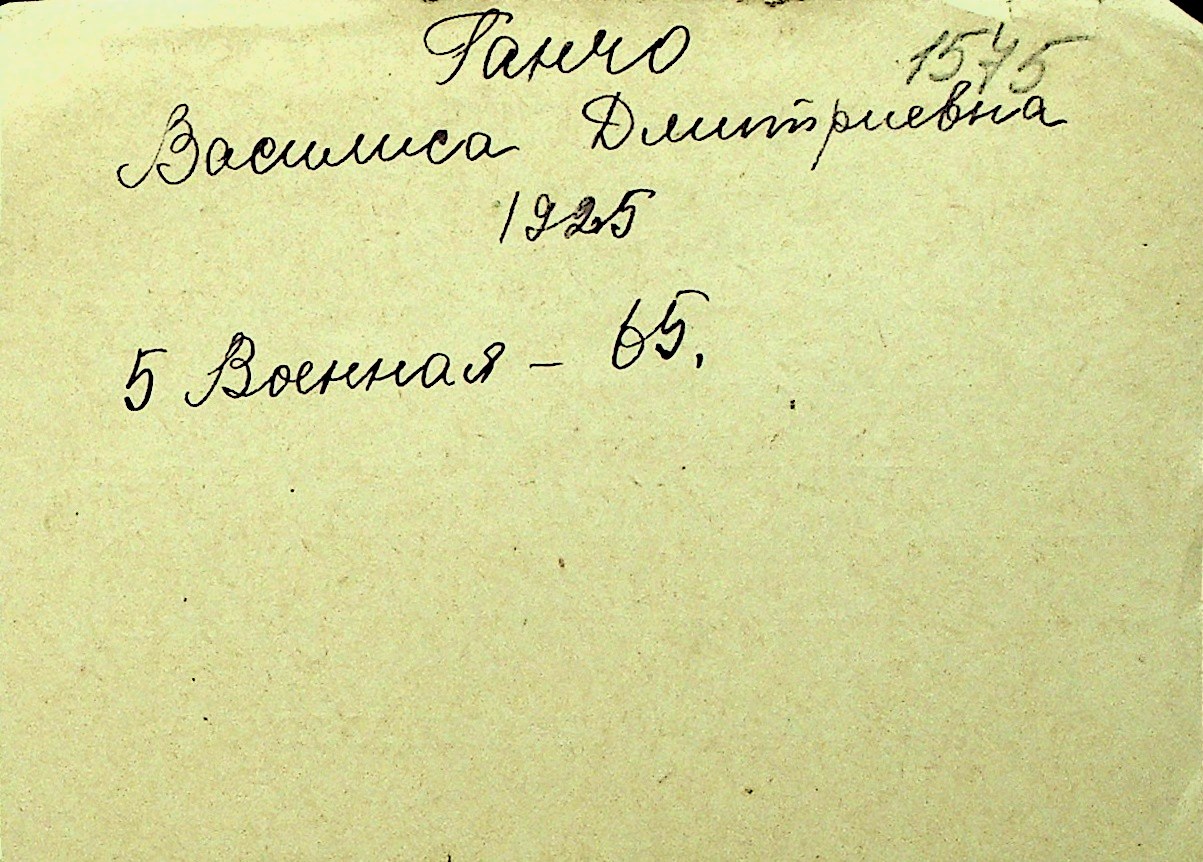 Ганчо 1545
Василиса Дмитриевна
1925
5 Военная - 65.